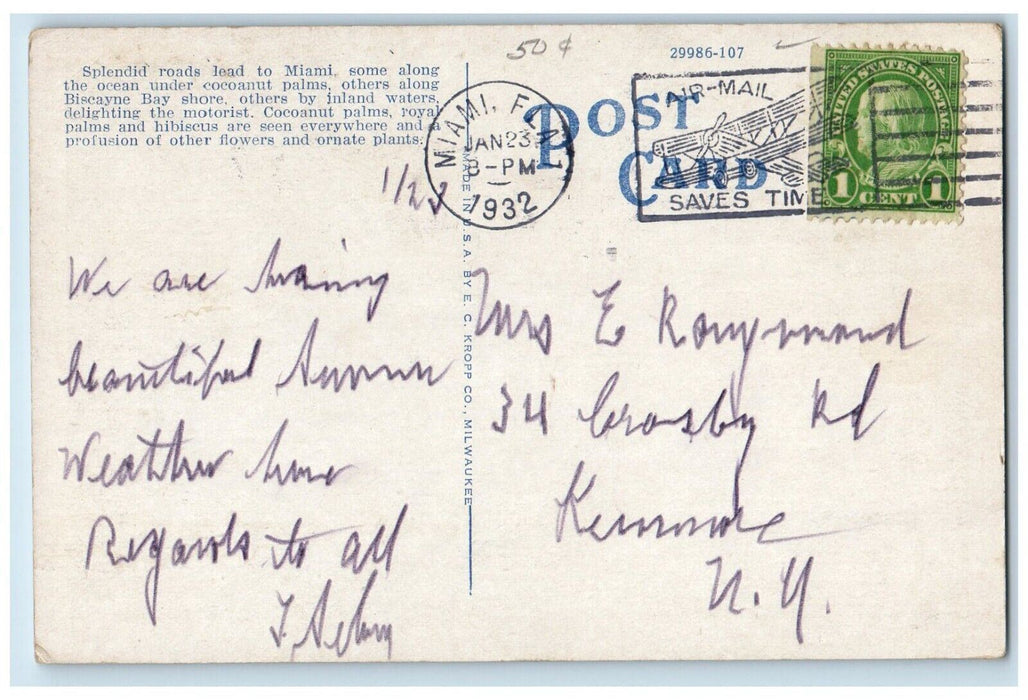 50¢
29986-107
Splendid roads lead to Miami, some along
the ocean under cocoanut palms, others along
Biscayne Bay shore, others by inland waters,
delighting the motorist. Cocoanut palms, royal
palms and hibiscus are seen everywhere and a
profusion of other flowers and ornate plants.
POST
CARD
MIAMI, FLA.
JAN 23
8-PM
1932
AIR-MAIL
SAVES TIME
UNITED STATES POSTAGE
1 CENT 1
MADE IN U.S.A. BY E. C. KROPP CO., MILWAUKEE
1/23
We are having
beautiful Summer
Weather here
Regards to all
Mrs E Raymond
34 Crosby Rd
Kenmore
N.Y.